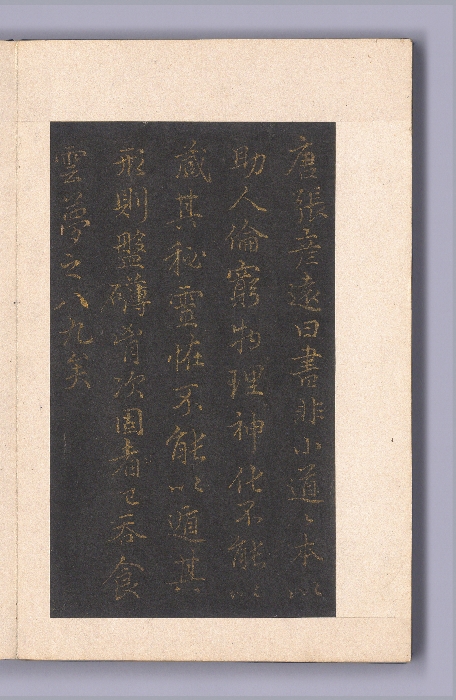 唐張彥遠曰書非小道〻本以
助人倫窮物理神化不能以
藏其秘靈怪不能以遁其
形則盤礴胷次固者已吞食
雲夢之八九矣